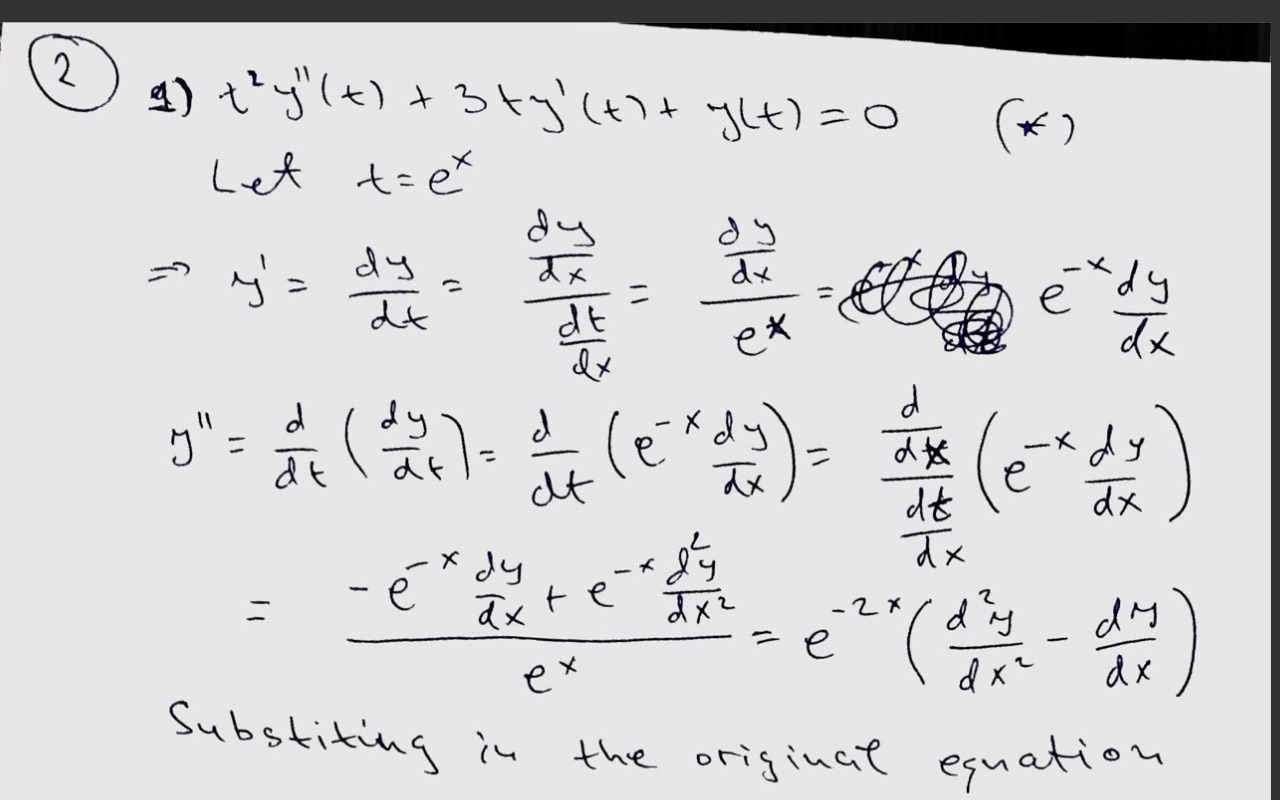 2
1) t²y''(t) + 3ty'(t) + y(t) = 0 (*)
Let t = e^x
⇒ y' = dy/dt = (dy/dx)/(dt/dx) = (dy/dx)/e^x = e^-x dy/dx
y'' = d/dt (dy/dt) = d/dt (e^-x dy/dx) = (d/dx)/(dt/dx) (e^-x dy/dx)
= (-e^-x dy/dx + e^-x d²y/dx²)/e^x = e^-2x (d²y/dx² - dy/dx)
Substiting in the original equation